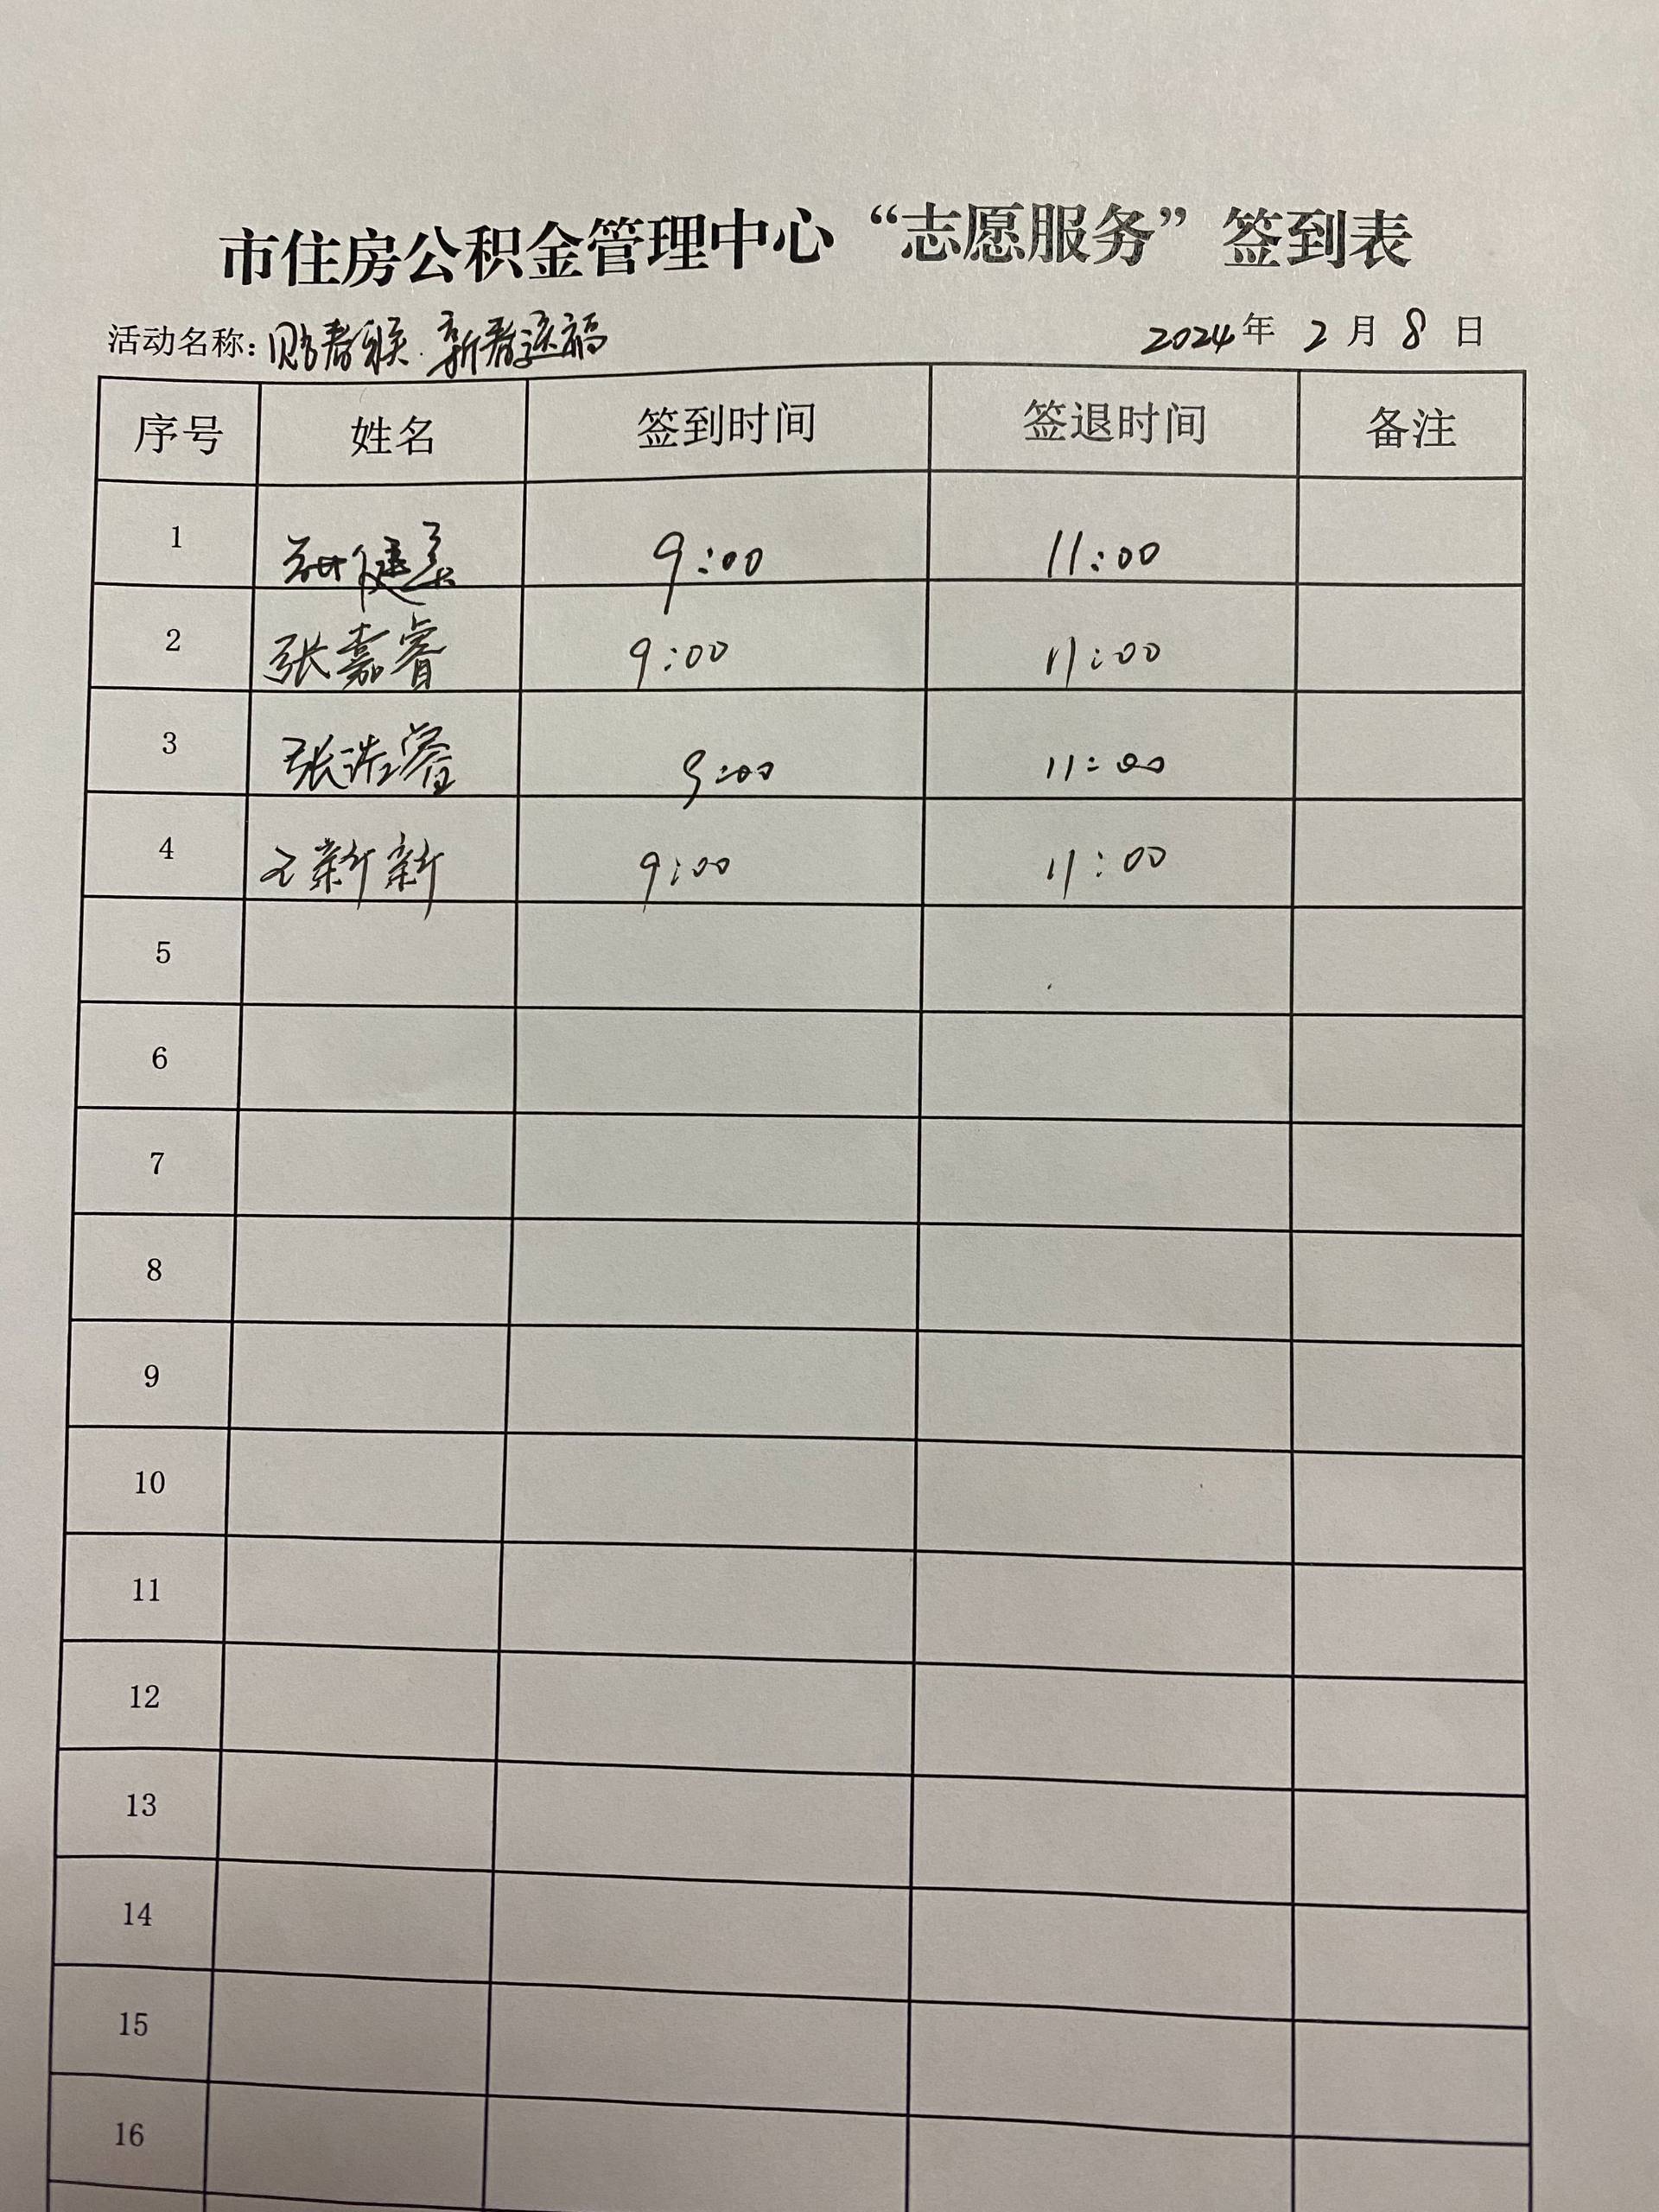 市住房公积金管理中心“志愿服务”签到表
活动名称：贴春联 新春送福 2024年2月8日
序号 姓名 签到时间 签退时间 备注
1 9:00 11:00
2 张嘉睿 9:00 11:00
3 张浩睿 9:00 11:00
4 王新新 9:00 11:00
5
6
7
8
9
10
11
12
13
14
15
16